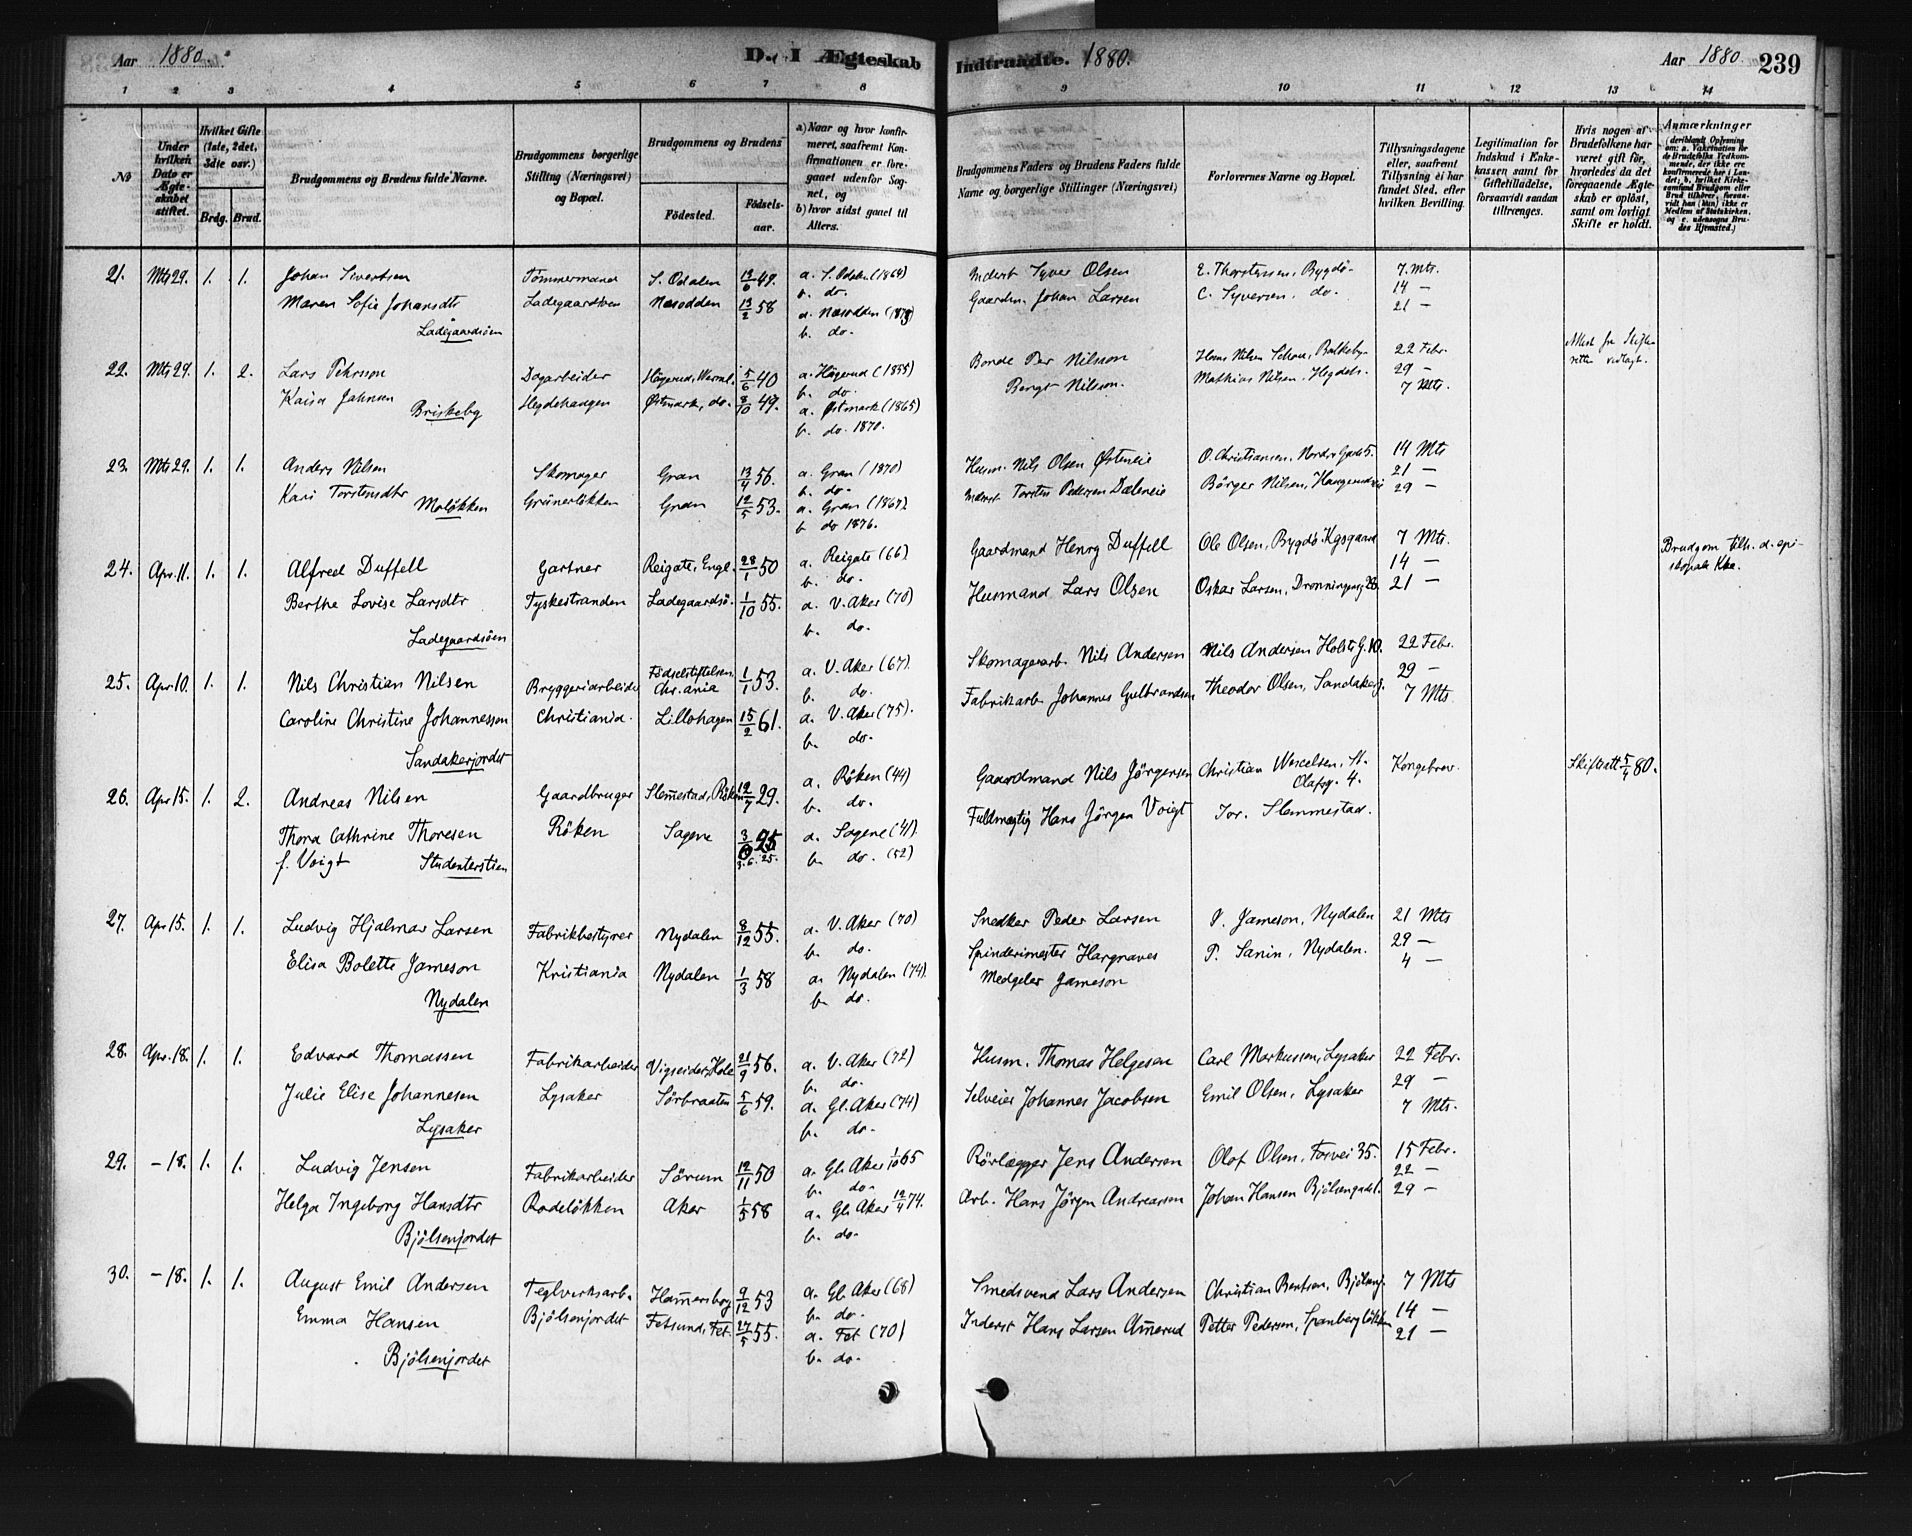 Aar 1880.
D. I Ægteskab
Indtraadte. 1880.
Aar 1880
239
1 2 3 4 5 6 7 8 9 10 11 12 13 14
No
Under hvilken Dato er Ægteskabet stiftet.
Hvilket Gifte (1ste, 2det, 3die osv.)
Brdg. Brud.
Brudgommens og Brudens fulde Navne.
Brudgommens borgerlige Stilling (Næringsvei) og Bopæl.
Brudgommens og Brudens
Födested.
Födselsaar.
a) Naar og hvor konfirmeret, saafremt Konfirmationen er foregaaet udenfor Sognet, og
b) hvor sidst gaaet til Alters.
Brudgommens Faders og Brudens Faders fulde Navne og borgerlige Stillinger (Næringsvei)
Forlovernes Navne og Bopæl.
Tillysningsdagene eller, saafremt Tillysning ei har fundet Sted, efter hvilken Bevilling.
Legitimation for Indskud i Enkekassen samt for Giftetilladelse, forsaavidt saadan tiltrænges.
Hvis nogen af Brudefolkene har været gift før, hvorledes da det foregaaende Ægteskab er oplöst, samt om lovligt Skifte er holdt.
Anmærkninger
21. Mts 29. 1. 1. Johan Sivertsen Tömmermand S. Odalen 12/6 49. a. S. Odalen (1864) Inderst Syver Olsen E. Thorstensen, Bygdö. 7 Mts.
b. do. 14 —
Maren Sofie Johansdtr Ladegaardsöen Næsodden 13/2 58 a. Næsodden (1873) Gaardm. Johan Larsen C. Syversen. do. 21 —
Ladegaardsöen b. do.
22. Mts 29. 1. 2. Lars Pehrsson Dagarbeider Hågerud, Werml. 5/6 40 a. Hågerud (1855) Bonde Per Nilsson Hans Nilsen 22 Febr.
b. do. 29 —
Kaisa Jahnsen Hegdehaugen Östmark, do. 8/10 49. a. Östmark (1865) Bengt Nilsson. Mathias Nilsen, Hegdeh. 7 Mts.
Briskeby b. do. 1870.
23. Mts 29. 1. 1. Anders Nilsen Skomager Gran 13/4 56. a. Gran (1870) Husm. Nils Olsen Østeneie O. Christiansen, Nordre Gade 5. 14 Mts
b. do. 21 —
Kari Torstensdtr Grünerlökken Gran 12/5 53. a. Gran (1867). Inderst Torsten Pedersen Dæleneie Börger Nilsen, 29 —
Moløkken b. do 1876.
24. Apr. 11. 1. 1. Alfred Duffell Gartner Reigate, Engl. 28/1 50 a. Reigate (66) Gaardmand Henry Duffell Ole Olsen, Bygdö Kgsgaard 7 Mts. Brudgom tilh. d. epi-
b. do. 14 — skopale Kke.
Berthe Lovise Larsdtr Tyskestranden Ladegaardsö. 1/10 55. a. V. Aker (70) Husmand Lars Olsen Oskar Larsen, Dronningensg 28. 21 —
Ladegaardsöen b. do.
25. Apr 10. 1. 1. Nils Christian Nilsen Bryggeriarbeider Födselstiftelsen, Chr.ania 1/1 53. a. V. Aker (67). Skomagerarb. Nils Andersen Nils Andersen Holsts G. 10. 22 Febr.
b. do. 29 —
Caroline Christine Johannesson Christiania. Lillohagen 15/2 61. a. V. Aker (75). Fabrikarb. Johannes Gulbrandsen Theodor Olsen, Sandakerj. 7 Mts
Sandakerjordet b. do.
26. Apr 15. 1. 2. Andreas Nilsen Gaardbruger Slemestad, Röken 12/7 29. a. Röken (44) Gaardmand Nils Jörgensen Christian Wescelsen, St. Olafsg. 4. Kongebrev. Skifteatt 5/4 80.
b. do.
Thora Cathrine Thoresen Röken Sagene 3/6 25 a. Sagene (41). Fuldmægtig Hans Jörgen Voigt Jor. Slemmestad.
f. Voigt Studenterstien 3.6.25. b. do. (52)
27. Apr 15. 1. 1. Ludvig Hjalmar Larsen Fabrikbestyrer Nydalen 8/12 55. a. V. Aker (70) Snedker Peder Larsen P. Jameson, Nydalen 21 Mts
b. do. 29 —
Elisa Bolette Jameson Kristiania Nydalen 1/3 58 a. Nydalen (74). Spinderimester Hargraves P. Sanin, Nydalen. 4 —
Nydalen b. do. Medgeler Jameson
28. Apr. 18. 1. 1. Edvard Thomassen Fabrikarbeider Vigseider, Hole 21/9 56. a. V. Aker (72) Husm. Thomas Helgesen Carl Markussen, Lysaker 22 Febr.
b. do. 29 —
Julie Elise Johannesen Lysaker Sörbraaten 5/6 59. a. Gl. Aker (74) Selveier Johannes Jacobsen Emil Olsen, Lysaker 7 Mts.
Lysaker b. do.
29. — 18. 1. 1. Ludvig Jensen Fabrikarbeider Sörum 12/11 50 a. Gl. Aker 1/10 65 Rörlægger Jens Andersen Olof Olsen, Fosvei 35. 15 Febr.
b. do. 22 —
Helga Ingeborg Hansdtr Rodelökken Aker 1/5 58 a. Gl. Aker 12/4 74. Arb. Hans Jörgen Andreassen Johan Hansen Bjölsengadel. 29 —
Bjölsenjordet b. do.
30. — 18. 1. 1. August Emil Andersen Teglverksarb. Hammersborg 9/12 53 a. Gl. Aker (68) Smedsvend Lars Andersen Christian Bentsen, Bjölsenj. 7 Mts
b. do. 14 —
Emma Hansen Bjölsenjordet Fetsund, Fet. 27/5 55. a. Fet (70) Inderst Hans Larsen Amerud Petter Pedersen, Spanberglökken 21 —
Bjölsenjordet b. do.